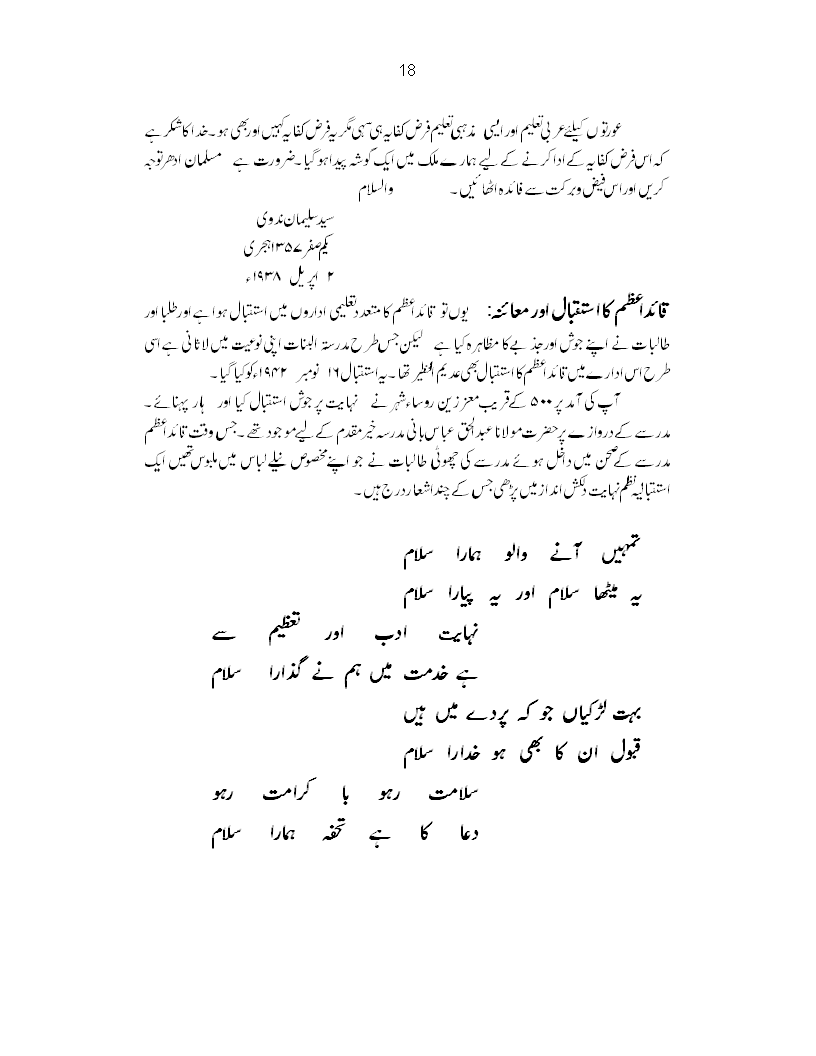 18
عورتوں کیلئے عربی تعلیم اور ایسی مذہبی تعلیم فرض کفایہ ہی سہی مگر یہ فرض کفایہ کہیں اور بھی ہو۔ خدا کا شکر ہے
کہ اس فرض کفایہ کے ادا کرنے کے لیے ہمارے ملک میں ایک گوشہ پیدا ہو گیا۔ ضرورت ہے مسلمان ادھر توجہ
کریں اور اس فیض وبرکت سے فائدہ اٹھائیں ۔ والسلام
سید سلیمان ندوی
یکم صفر ۱۳۵۷ہجری
۲ اپریل ۱۹۳۸ء
قائداعظم کا استقبال اور معائنہ: یوں تو قائداعظم کا متعدد تعلیمی اداروں میں استقبال ہوا ہے اور طلبا اور
طالبات نے اپنے جوش اور جذبے کا مظاہرہ کیا ہے لیکن جس طرح مدرسۃ البنات اپنی نوعیت میں لاثانی ہے اسی
طرح اس ادارے میں قائداعظم کا استقبال بھی عدیم النظیر تھا۔ یہ استقبال ۱۶ نومبر ۱۹۴۲ء کو کیا گیا۔
آپ کی آمد پر ۵۰۰ کے قریب معززین روساء شہر نے نہایت پرجوش استقبال کیا اور ہار پہنائے۔
مدرسے کے دروازے پر حضرت مولانا عبدالحق عباس بانی مدرسہ خیر مقدم کے لیے موجود تھے۔ جس وقت قائداعظم
مدرسے کے صحن میں داخل ہوئے مدرسے کی چھوٹی طالبات نے جو اپنے مخصوص نیلے لباس میں ملبوس تھیں ایک
استقبالیہ نظم نہایت دلکش انداز میں پڑھی جس کے چند اشعار درج ہیں ۔
تمہیں آنے والو ہمارا سلام
یہ میٹھا سلام اور یہ پیارا سلام
نہایت ادب اور تعظیم سے
ہے خدمت میں ہم نے گذارا سلام
بہت لڑکیاں جو کہ پردے میں ہیں
قبول ان کا بھی ہو خدارا سلام
سلامت رہو با کرامت رہو
دعا کا ہے تحفہ ہمارا سلام